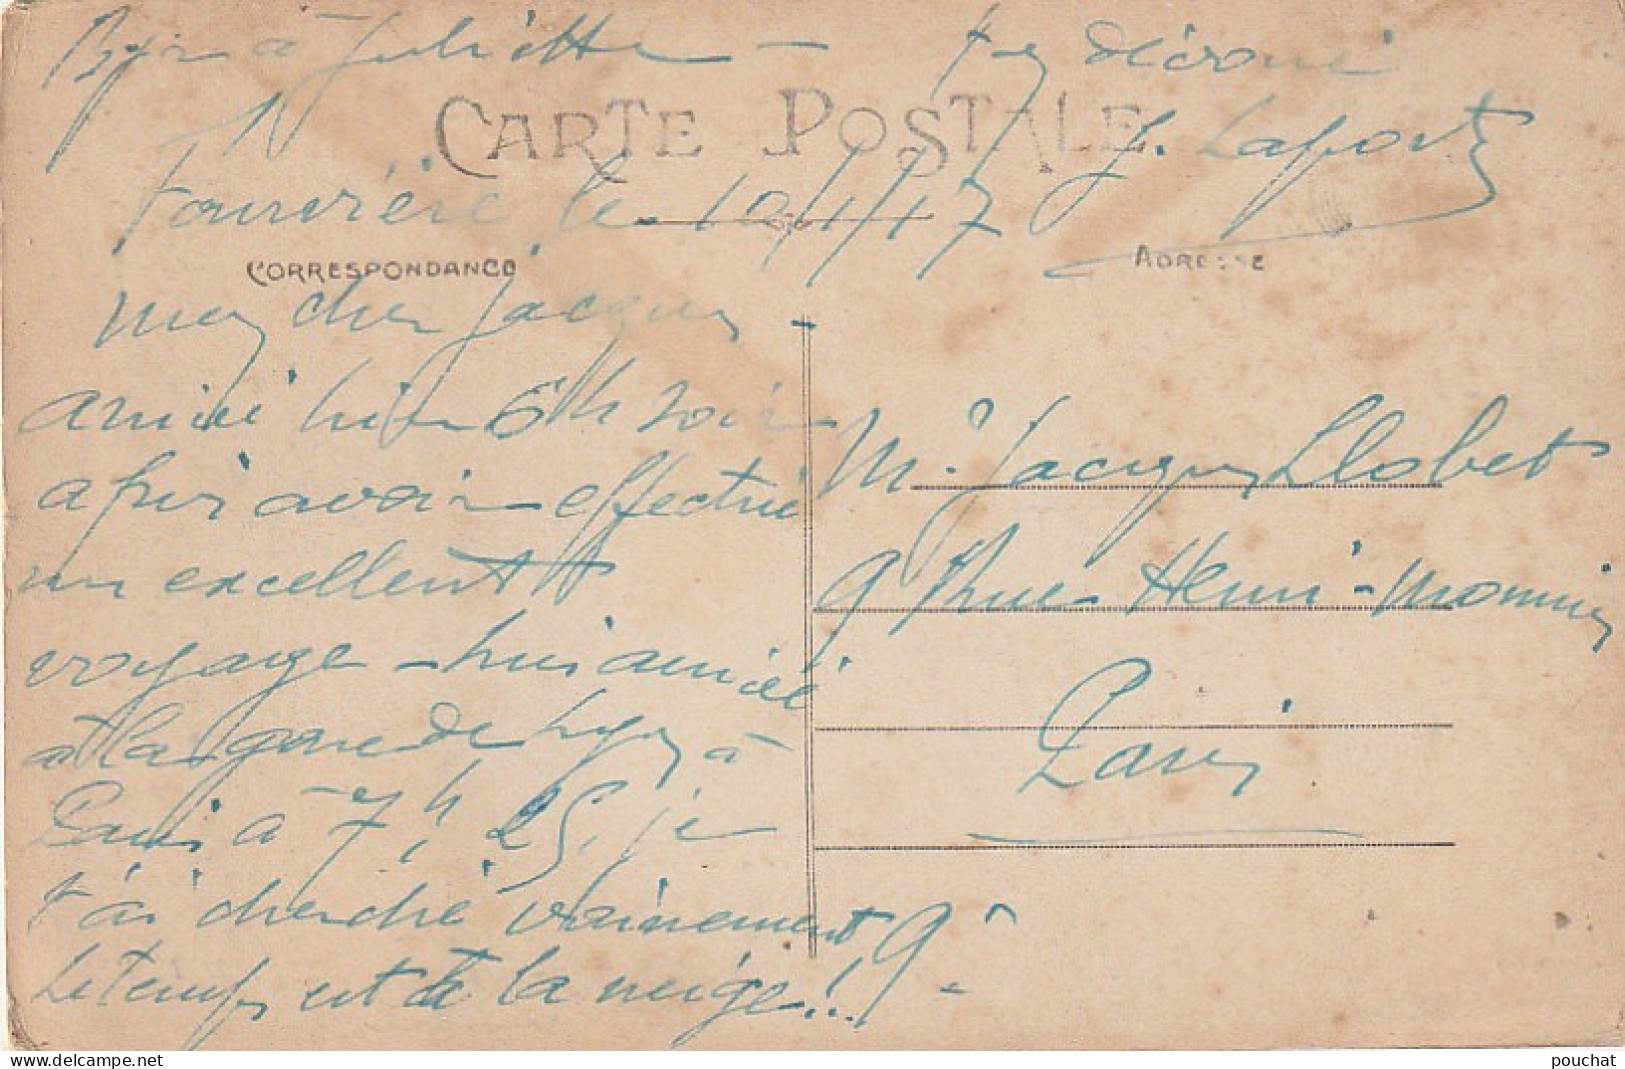 Bjr à Juliette — ton dévoué
CARTE POSTALE
J. Laporte
Fourvière le 10/1/17
CORRESPONDANCE
ADRESSE
Mon cher Jacques -
arrivé hier 6h soir
après avoir effectué
un excellent
voyage - suis arrivé
à la gare de Lyon à
Paris à 7h 25, je
t'ai cherché vainement
Le temps est à la neige..!
Mr Jacques Llobet
9 Rue Henri-Monnier
Paris
9e
pouchat